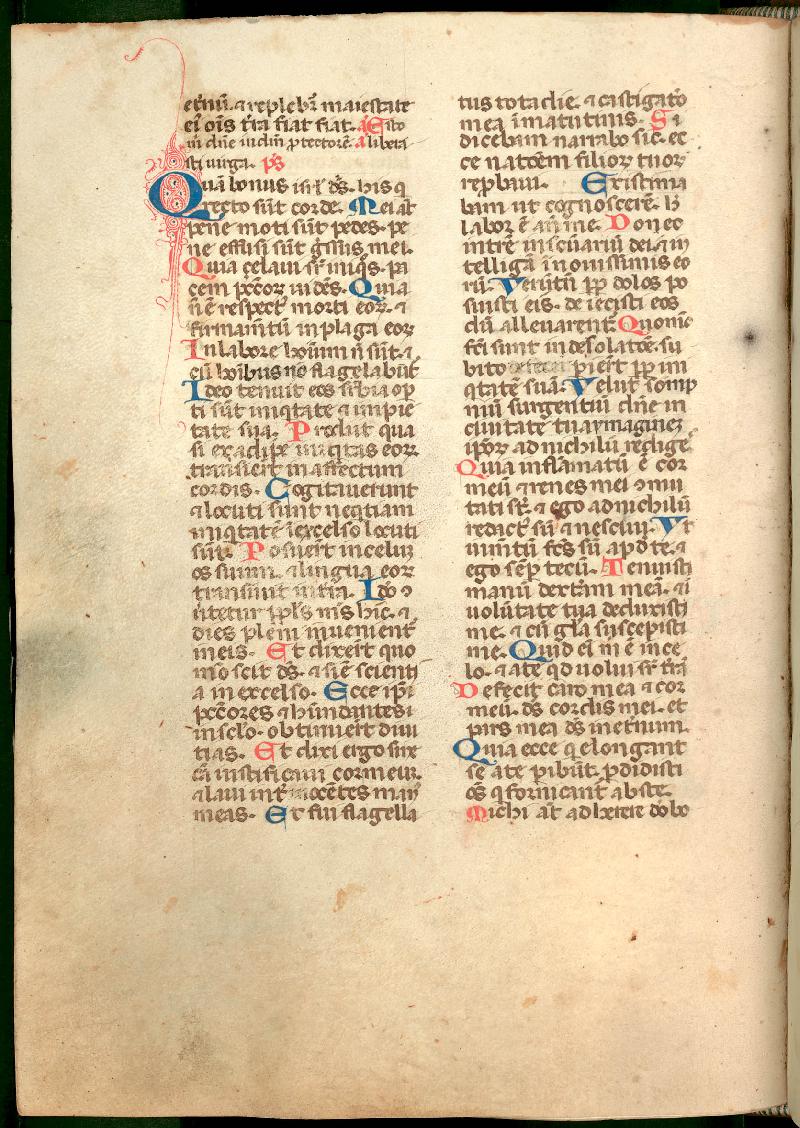 et̄nū. ⁊ replebr̄ maiestate
ei' oīs t̄ra fiat fiat. a Esto
m̄ dn̄e in dm̄ ꝓtectorē a libera
sti uirga. ps
Quā bonus isrl̄ ds̄. his q
recto sūt corde. Mei aūt
pene moti sūt pedes. pe
ne effusi sūt gr̄ssus mei.
Quia çelaui sr̄ iniqs. pa
cem pcc̄or uidēs. Quia
nō ē respect' morti eoꝝ. ⁊
firmam̄tū in plaga eoꝝ
In labore hōium nō sūt. ⁊
cū hoībus nō flagelabūt
Ideo tenuit eos suꝑbia oꝑ
ti sūt iniqtate ⁊ impie
tate sua. Prodiit qua
si ex adipe iniqtas eoꝝ
transierūt in affectum
cordis. Cogitauerunt
⁊ locuti sunt neqtiam
iniqtatē ī excelso locuti
sūt. Posuert̄ in celuȝ
os suum. ⁊ lingua eoꝝ
transiuit in t̄ra. Ido ɔ
ūtetur ppl̄s m̄s hic. ⁊
dies pleni inuenient̄
in eis. Et dixert̄ quo
mō scit ds̄. ⁊ si ē scienti
a in excelso. Ecce ip̄i
pcc̄ores ⁊ hūndantes i
in sclō. obtinuert̄ diui
tias. Et dixi ergo sine
cā iustificaui cor meuȝ.
⁊ laui int̄ inocētes man'
meas. Et fui flagella
tus tota die. ⁊ castigatō
mea ī matutinis. Si
dicebam narrabo sic. ec
ce natoēm filioꝝ tuoꝝ
rep̄baui. Existima
bam ut cognoscerē. h̄
labor ē an̄ me. Donec
intrē in sc̄uariū dei. ⁊ in
telligā ī nouissimis eo
rū. Verūtn̄ pp dolos po
suisti eis. deiecisti eos
dū alleuarent̄. Quomō
fc̄i sunt in desolatōē. su
bito piert̄ pp̄ in
qtatē suā. Velut somp
niū surgentiū dn̄e in
ciuitate tua ymaginez
ip̄oꝝ ad nichilū rediges̄
Quia inflamatū ē cor
meū ⁊ renes mei ɔmu
tati st̄. ⁊ ego ad nichilū
redact' sū ⁊ nesciui. Vt
iumtū fc̄s sū apd te. ⁊
ego semꝑ tecū. Tenuisti
manū dextam meā. ⁊ ī
uolūtate tua deduxisti
me. ⁊ cū gl̄a suscepisti
me. Quid ei m̄ ē in ce
lo. ⁊ a te qd uolui sr̄ t̄rā
Defecit caro mea ⁊ cor
meū. ds̄ cordis mei. et
pars mea ds̄ in et̄num.
Quia ecce q elongant
se a te pibūt. ꝑdidisti
os̄ q fornicant̄ abs te.
Michi aūt adherere dō bo